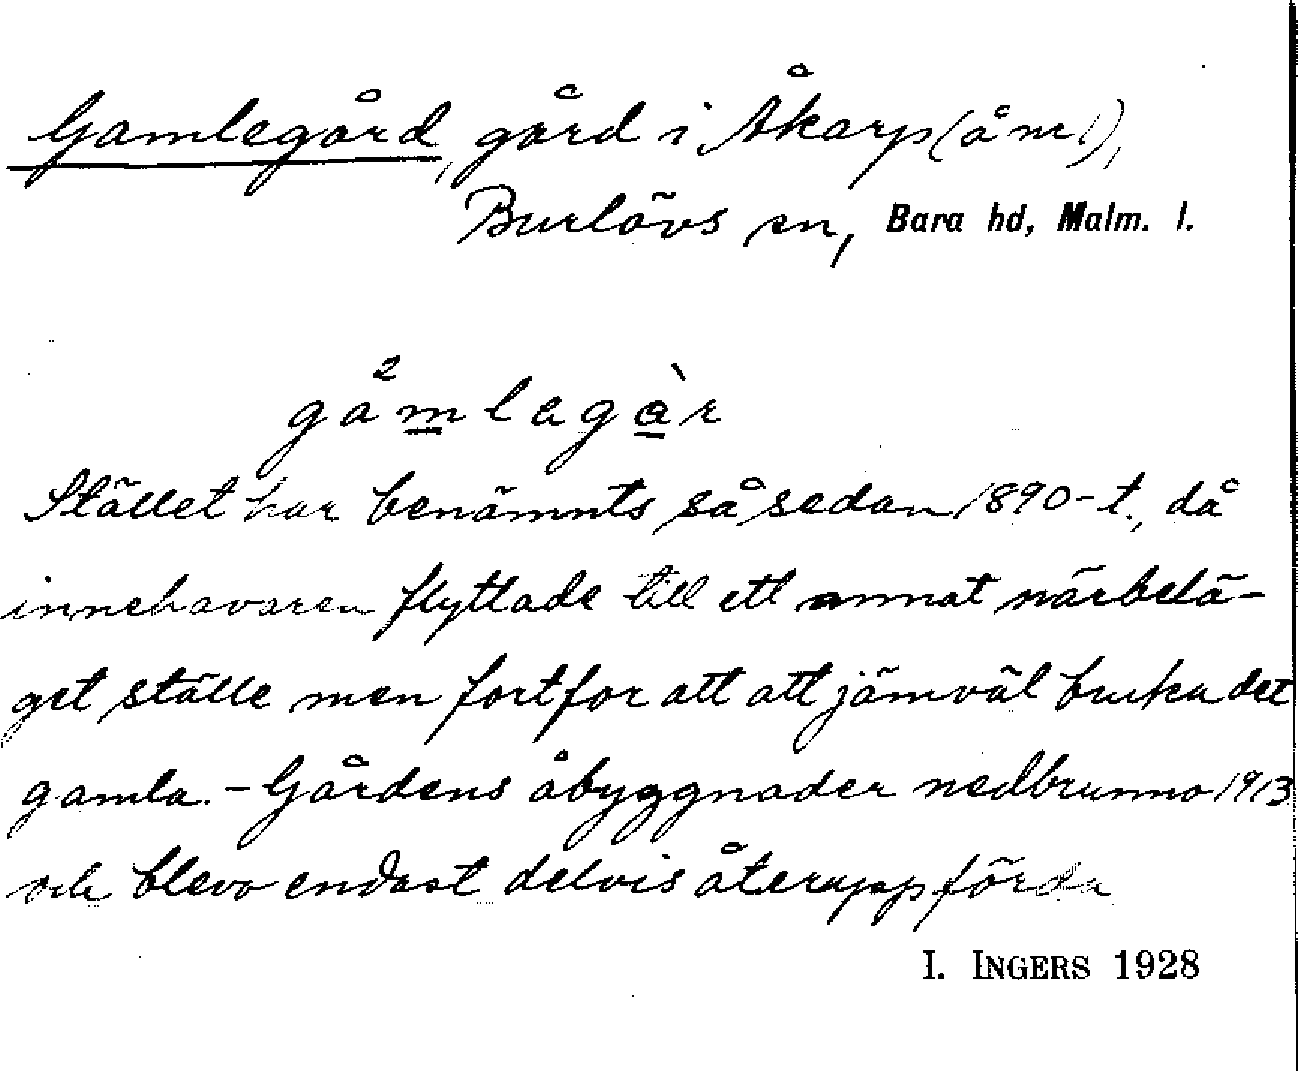 Gamlegård, gård i Åkarp (ånr 1),
Burlövs sn, Bara hd, Malm. l.
gåmlagàr
Stället har benämnts så sedan 1890-t., då
innehavaren flyttade till ett annat närbelä-
get ställe men fortfor att att jämväl bruka det
gamla. - Gårdens åbyggnader nedbrunno 1913
och blevo endast delvis återuppförda
I. INGERS 1928